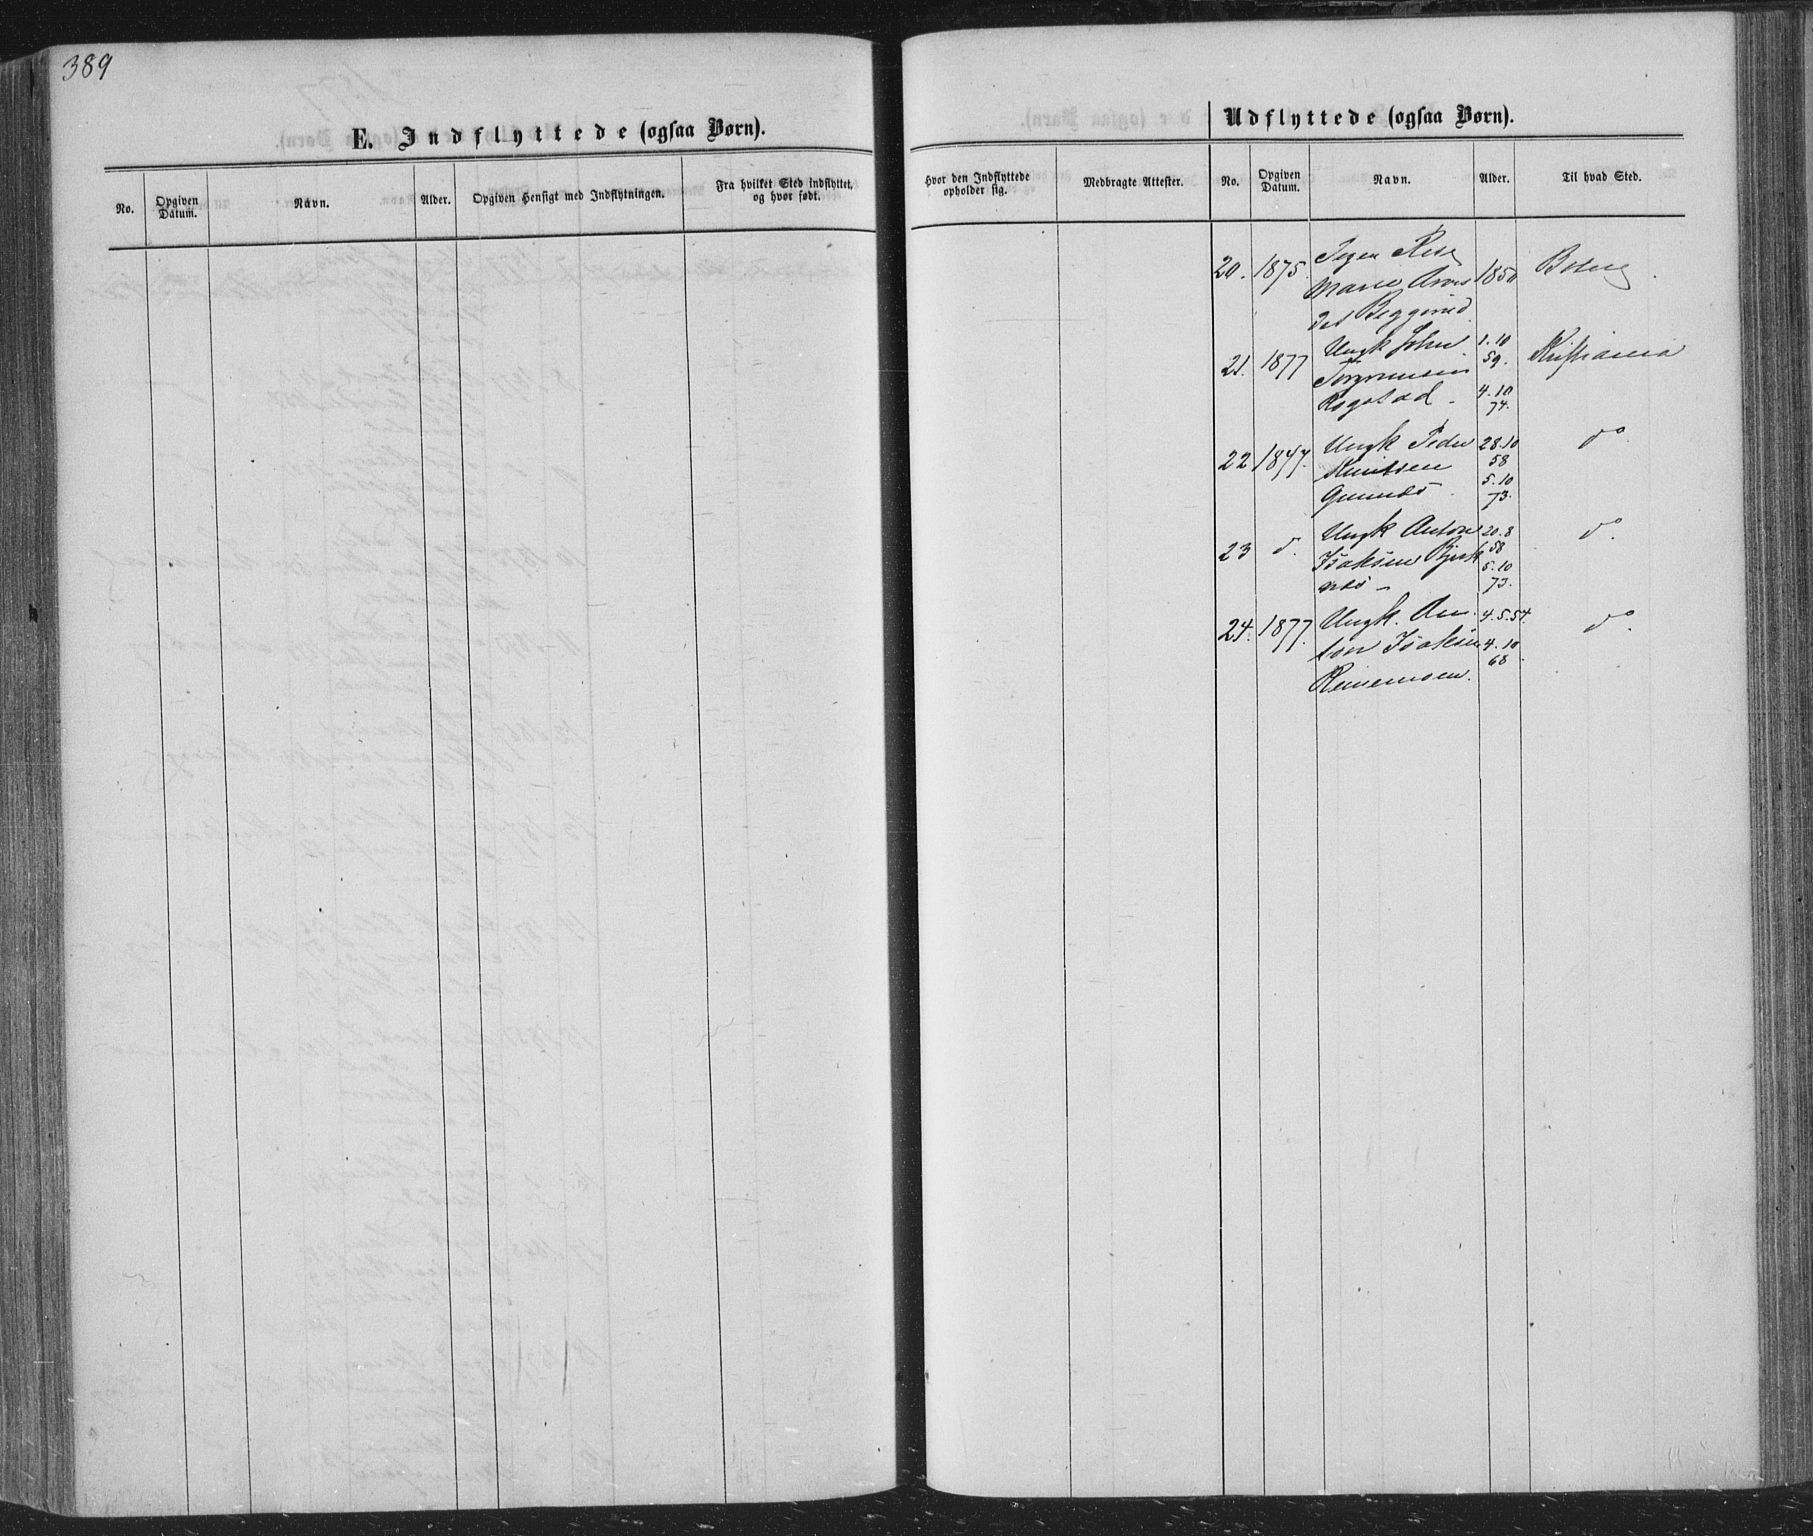 389
E. Indflyttede (ogsaa Børn).
No.
Opgiven Datum.
Navn.
Alder.
Opgiven Hensigt med Indflytningen.
Fra hvilket Sted indflyttet, og hvor født.
Hvor den Indflyttede opholder sig.
Medbragte Attester.
Udflyttede (ogsaa Børn).
No.
Opgiven Datum.
Navn.
Alder.
Til hvad Sted.
20. 1875.
Marie 1850
21. 1877 Ungk John 1.10 59. Kristiania
Rogstad. 4.10 74.
22 1877. Ungk Peder 28.10 58 do
Knutsen 5.10 73.
23 d. Ungk Anton 20.8 58 do.
Isaksen 5.10 73.
24. 1877. Ungk. An- 4.5.54. do.
ton Isaksen 4.10 68.